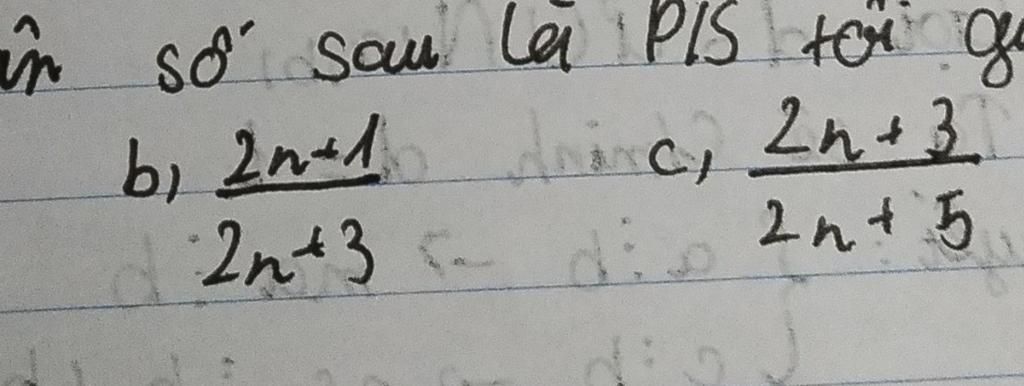 số sau là P/S tối
b, 2n+1 / 2n+3 c, 2n+3 / 2n+5